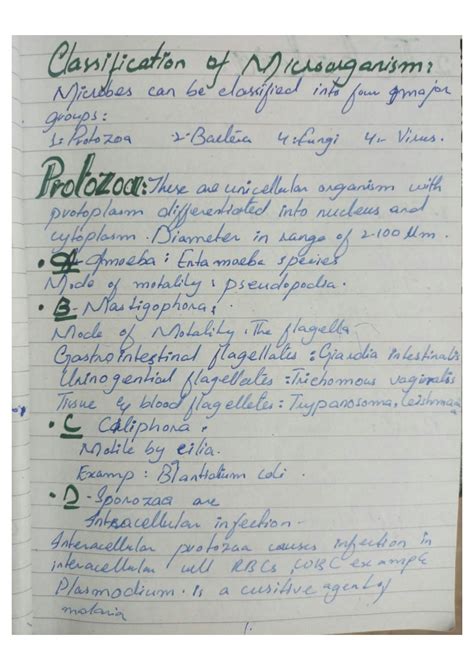 Classification of Microorganism:
Microbes can be classified into four major
groups:
1: Protozoa 2: Bacteria 4: Fungi 4- Virus.
Protozoa: These are unicellular organism with
protoplasm differentiated into nucleus and
cytoplasm. Diameter in range of 2-100 μm.
• A - Amoeba: Entamoeba species
Mode of motality: pseudopodia.
• B - Mastigophora:
Mode of Motality: The flagella
Gastrointestinal flagellates: Giardia intestinalis
Urinogential flagellates: Trichomous vaginatis
Tissue & blood flagelletes: Trypanosoma, Leishmania
• C Caliphora:
Motile by cilia.
Examp: Blantidium coli.
• D - Sporozoa are
Intracellular infection-
Interacellular protozaa causes infection in
interacellular cell RBCs, WBC example
Plasmodium. Is a cusitive agent of
malaria
1.